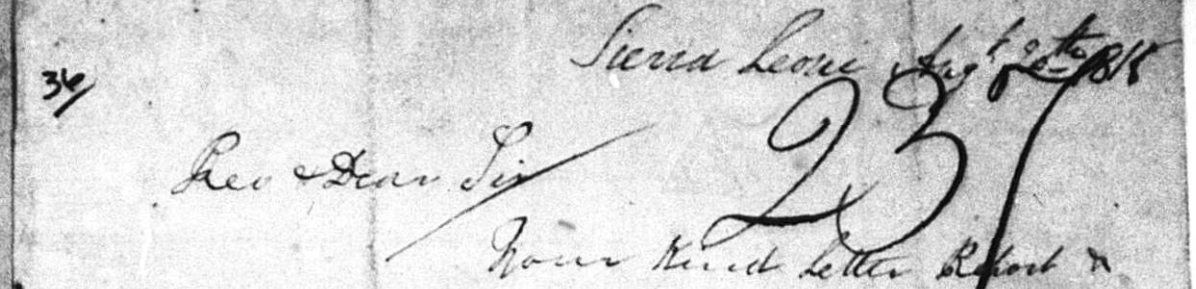 Sierra Leone Augt 20th 1818
36/
23/
Rev & Dear Sir
Your Kind Letter Report &